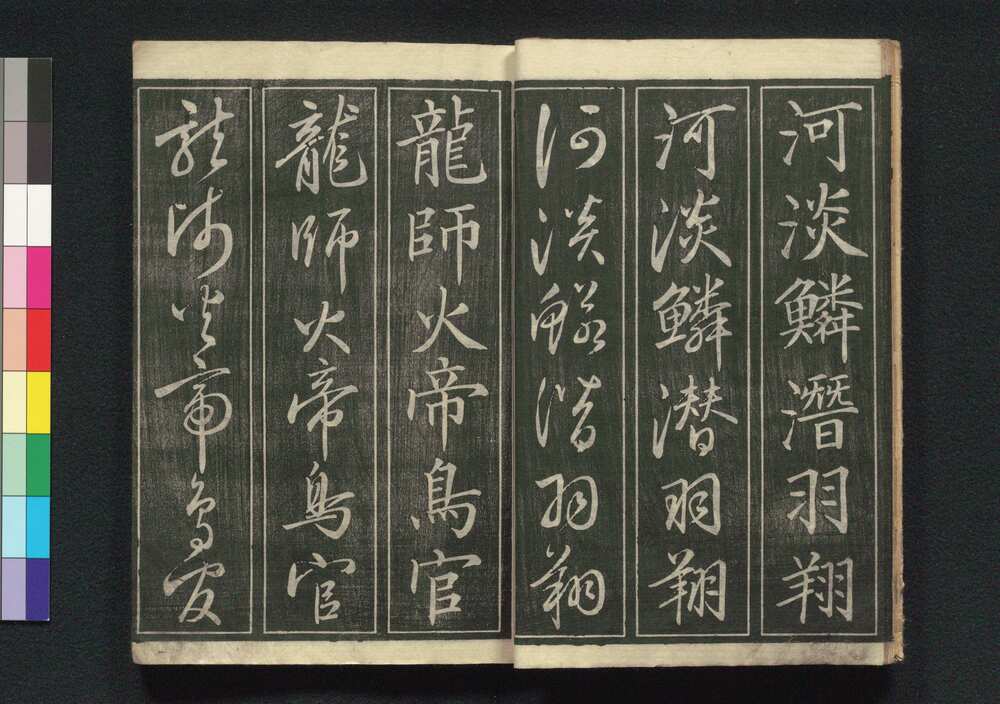 河淡鱗潛羽翔
河淡鱗潜羽翔
河淡鱗潜羽翔
龍師火帝鳥官
龍師火帝鳥官
龍師火帝鳥官